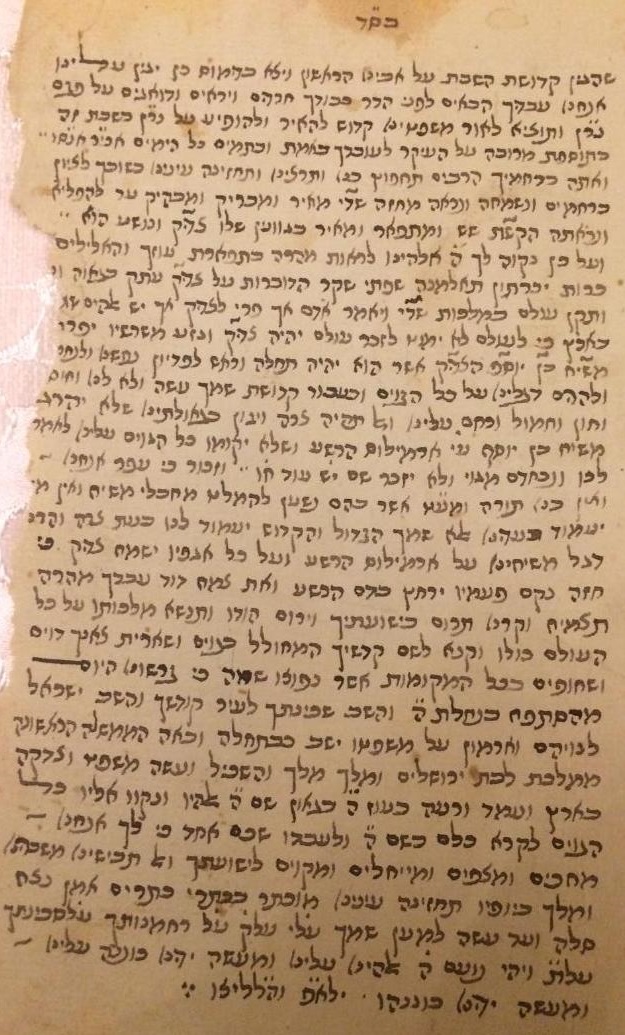 בס״ד
קדושת השבת על אבינו הראשון ויצא בדמוס כן יגין עלינו
אנחנו עבדך הבאים לפני הדר כבודך חרדים ויראים ודואגים על פגם
ותוציא לאור משפטינו קדוש להאיר ולהופיע על בשבת זה
בתוספת מרובה על העיקר לעובדך באמת ובתמים כל הימים
ואתה ברחמיך הרבים תחפוץ בנו ותרצינו ותחזינה עינינו בשובך לציון
ברחמים ונשמחה ונראה מחזה שדי מאיר ומבריק ומבהיק עד
ונראתה הקשת שש ומתפאר ומאיר בגוונין שלו צדיק ונושע הוא
ועל כן נקוה לך ה׳ אלהינו לראות מהרה בתפארת עוזך והאלילים
כרות יכרתון תאלמנה שפתי שקר הדוברות על צדיק עתק בגאוה
ותקן עולם במלכות שדי ויאמר אדם אך פרי לצדיק אך יש אלהים
בארץ כי לעולם לא ימוט לזכר עולם יהיה צדיק וגזע משרשיו יפרי
משיח בן יוסף הצדיק אשר הוא יהיה תחלה וראש לפדיון נפשנו
על כל הגוים ובעבור קדושת שמך עשה ולא לנו
וחון וחמול ורחם עלינו ואל תהיה צרה ויגון בגאולתינו שלא יהרג
משיח בן יוסף ע״י ארמילוס הרשע ושלא יקומו כל הגוים עלינו לאמר
לכו ונכחדם מגוי ולא יזכר שם עוד ח״ו וזכור כי עפר אנחנו
ואין בנו תורה ומע״ט אשר בהם נשען להמלט מחבלי משיח ואין מי
יעמוד בעדנו אלא שמך הגדול והקדוש יעמוד לנו בעת צרה
רגל משיחינו על ארמילוס הרשע ועל כל אגפיו ישמח צדיק כי
חזה נקם פעמיו ירחץ בדם הרשע ואת צמח דוד עבדך מהרה
תצמיח וקרנו תרום בישועתיך וירום הודו ותנשא מלכותו על כל
העולם כולו וקנא לשם קדשך המחולל בגוים ושארית צאנך דוים
וסחופים בכל המקומות אשר נפוצו שמה כי גרשונו היום
מהסתפח בנחלת ה׳ והשב שכינתך לעיר קודשך והשב ישראל
לנויהם וארמון על משפטו ישב כבתחלה ובאה הממשלה הראשונה
ממלכת לבת ירושלים ומלך מלך והשכיל ועשה משפט וצדקה
בארץ ועמד ורעה בעוז ה׳ בגאון שם ה׳ אלהיו ונקוו אליו כל
הגוים לקרא כלם בשם ה׳ ולעבדו שכם אחד כי לך אנחנו
מחכים ומצפים ומייחלים ומקוים לישועתך ואל תבישינו משברנו
ומלך ביופיו תחזינה עינינו מוכתר בכתרי כתרים אמן נצח
סלה ועד עשה למען שמך על רחמנותך
ויהי נועם ה׳ אלהינו עלינו ומעשה ידינו כוננה עלינו
ומעשה ידינו כוננהו